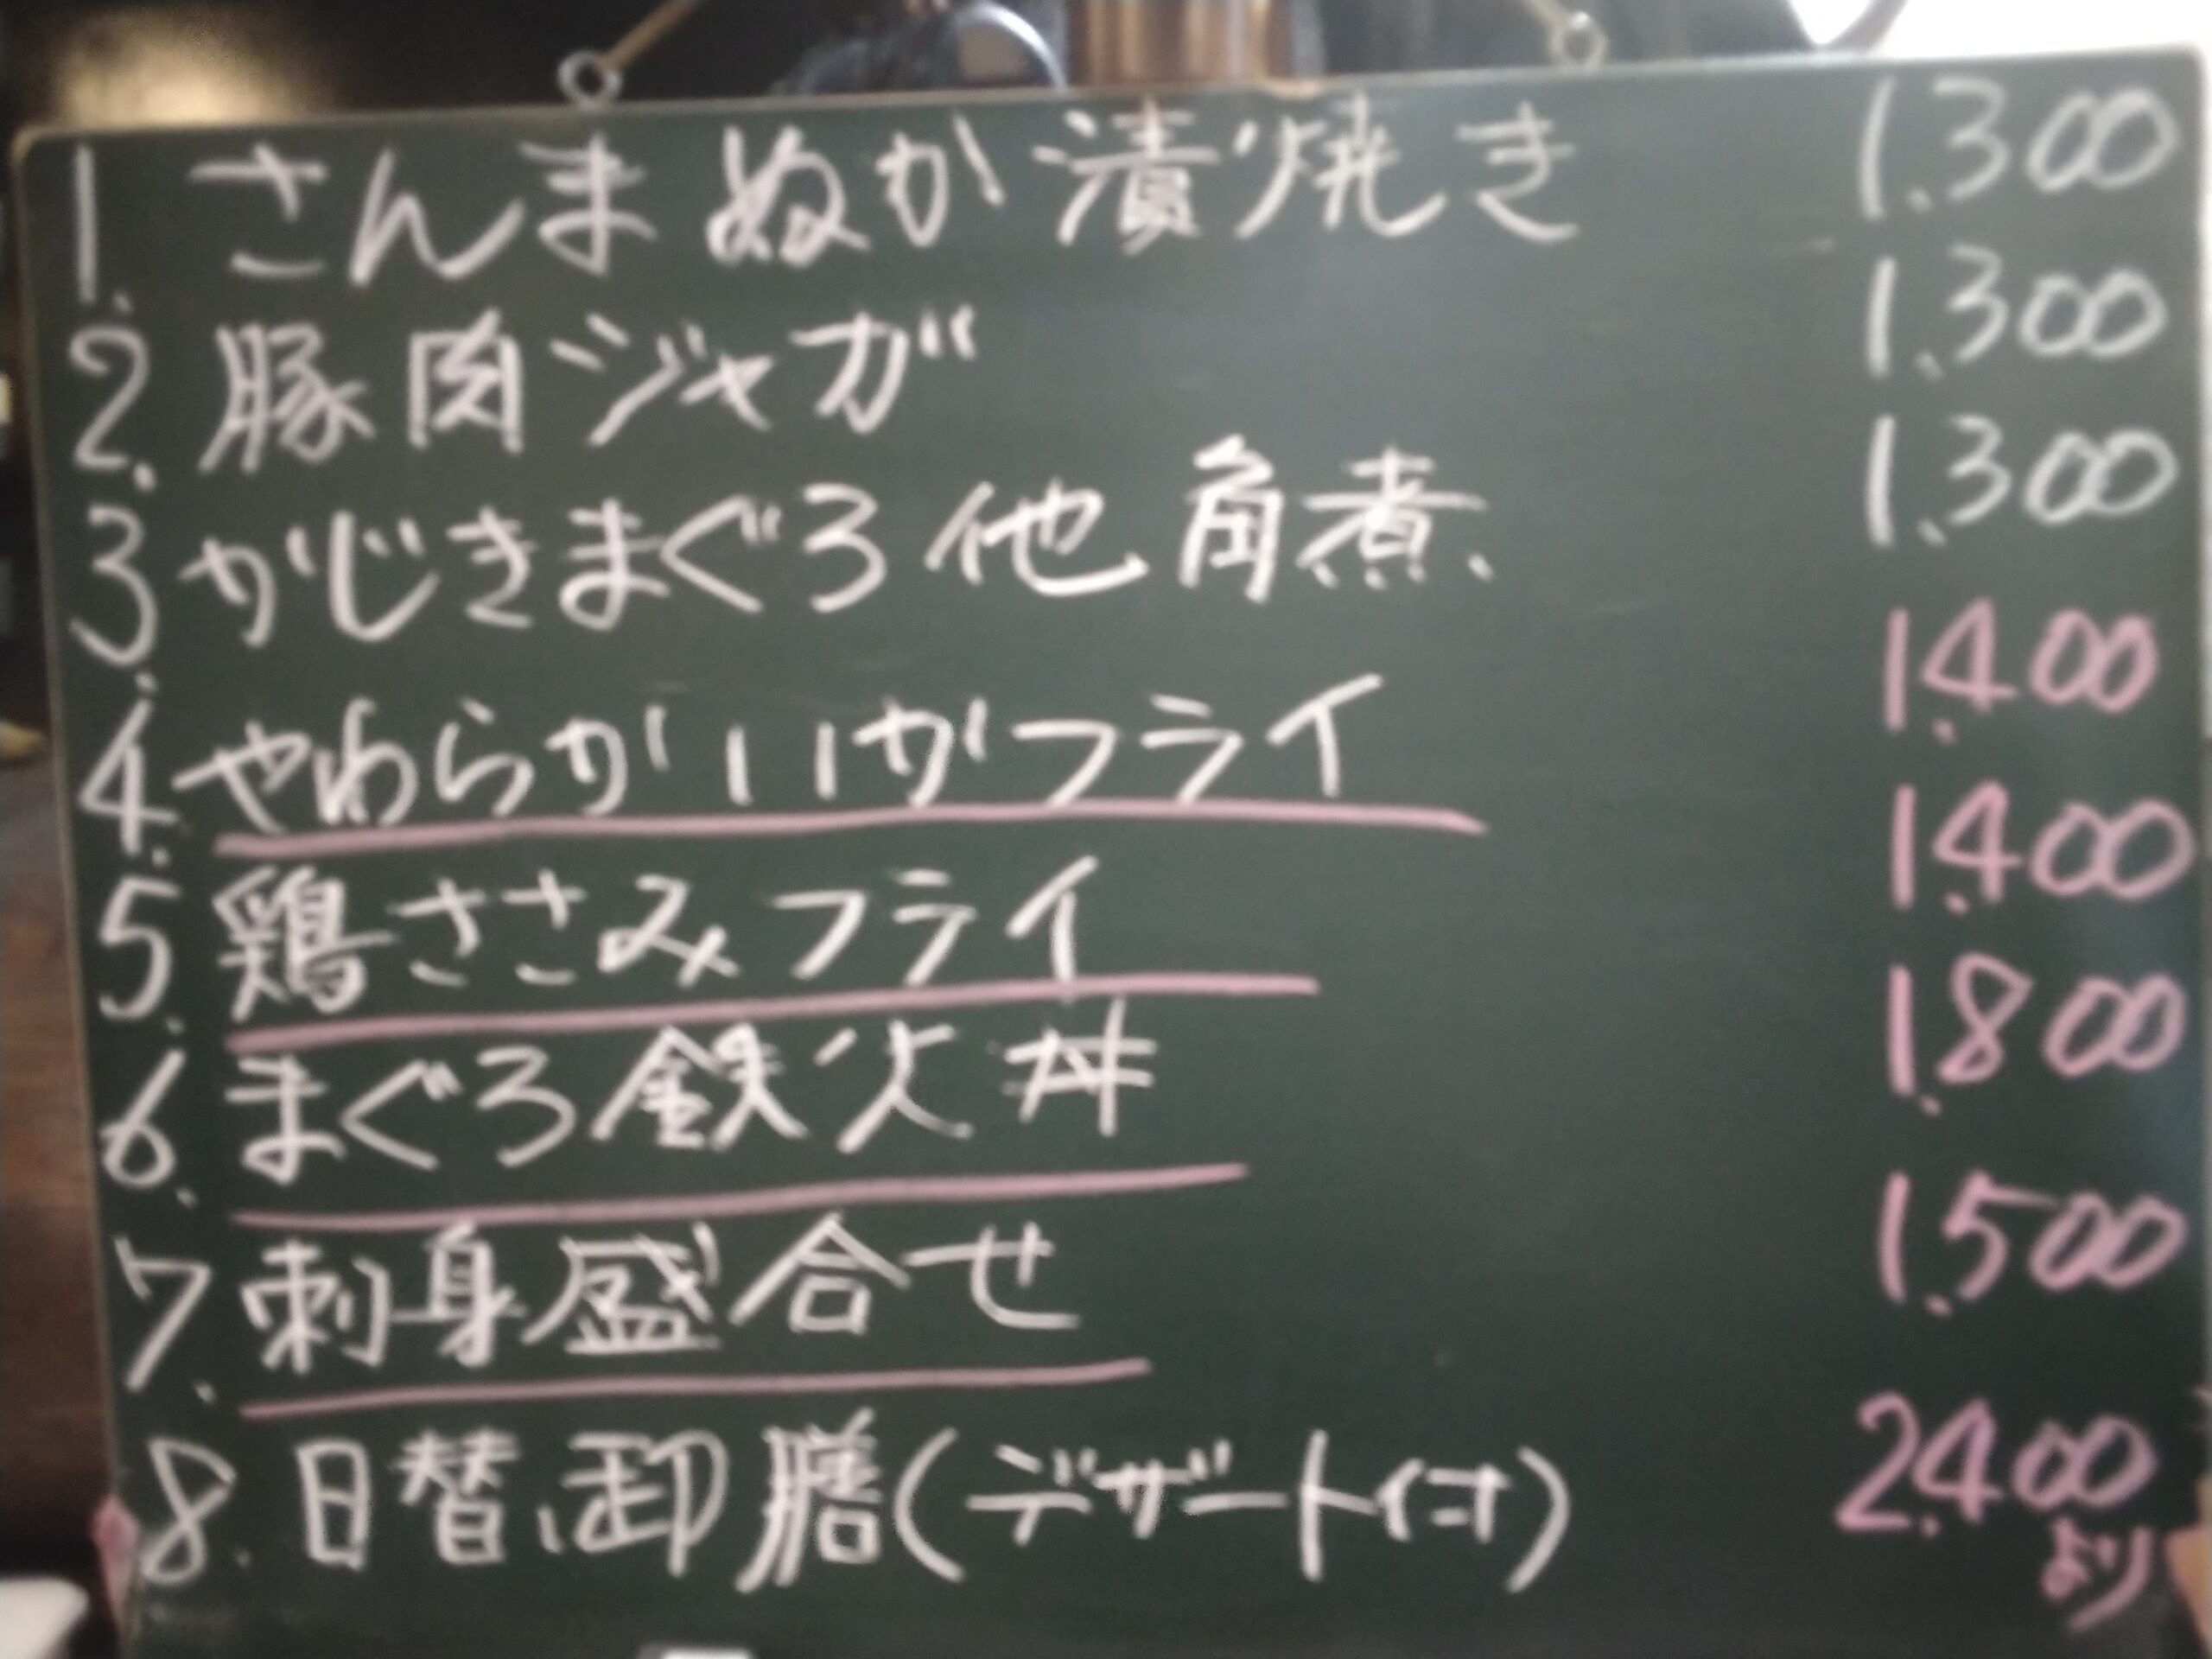 1. さんまぬか漬焼き 1.300
2. 豚肉ジャガ 1.300
3. かじきまぐろ他角煮、 1.300
4. やわらかいかフライ 1.400
5. 鶏ささみフライ 1.400
6. まぐろ鉄火丼 1.800
7. 刺身盛合せ 1.500
8. 日替御膳(デザート付) 2.400
より